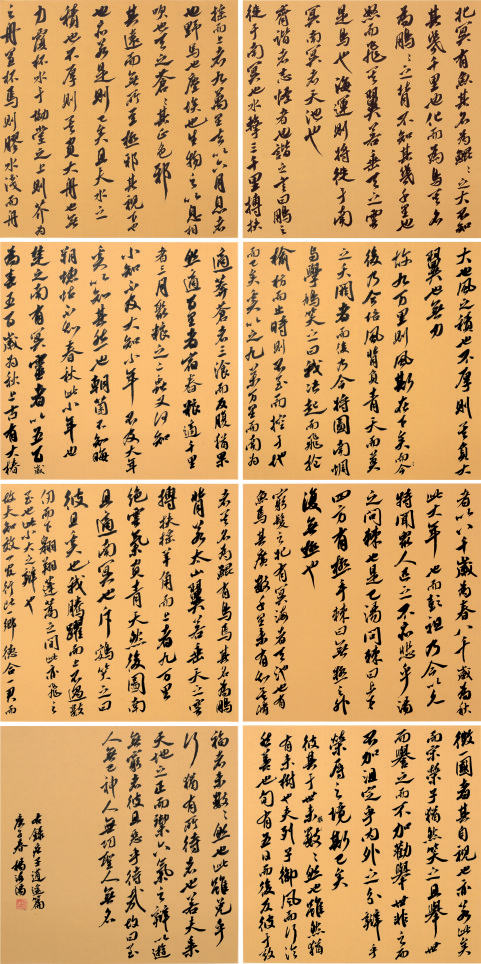 北冥有魚其名為鯤鯤之大不知
其幾千里也化而為鳥其名
為鵬鵬之背不知其幾千里也
怒而飛其翼若垂天之雲
是鳥也海運則將徙于南
冥南冥者天池也
齊諧者志怪者也諧之言曰鵬之
徙于南冥也水擊三千里摶扶
搖而上者九萬里去以六月息者
也野馬也塵埃也生物之以息相
吹也天之蒼蒼其正色邪
其遠而無所至極邪其視下也
亦若是則已矣且夫水之
積也不厚則其負大舟也無
力覆杯水于坳堂之上則芥為
之舟置杯焉則膠水淺而舟
大也風之積也不厚則其負大
翼也無力
故九万里則風斯在下矣而今
後乃今培風背負青天而莫
之夭閼者而後乃今將圖南蜩
與學鳩笑之曰我決起而飛搶
榆枋而止時則不至而控于地
而已矣奚以之九萬里而南為
適莽蒼者三湌而反腹猶果
然適百里者宿舂糧適千里
者三月聚糧之二蟲又何知
小知不及大知小年不及大年
奚以知其然也朝菌不知晦
朔蟪蛄不知春秋此小年也
楚之南有冥靈者以五百歲
為春五百歲為秋上古有大椿
者以八千歲為春八千歲為秋
此大年也而彭祖乃今以久
特聞眾人匹之不亦悲乎湯
之問棘也是已湯問棘曰上下
四方有極乎棘曰無極之外
復無極也
窮髮之北有冥海者天池也有
魚焉其廣數千里未有知其脩
者其名為鯤有鳥焉其名為鵬
背若太山翼若垂天之雲
摶扶搖羊角而上者九萬里
絕雲氣負青天然後圖南
且適南冥也斥鴳笑之曰
彼且奚也我騰躍而上不過數
仞而下翱翔蓬蒿之間此亦飛之
至也此小大之辯也
故夫知效一官行比鄉德合一君而
徵一國者其自視也亦若此矣
而宋榮子猶然笑之且舉世
而譽之而不加勸舉世非之而
不加沮定乎內外之分辯乎
榮辱之境斯已矣
彼其于世未數數然也雖然猶
有未樹也夫列子御風而行泠
然善也旬有五日而後反彼于致
福者未數數然也此雖免乎
行猶有所待者也若夫乘
天地之正而禦六氣之辯以遊
無窮者彼且惡乎待哉故曰至
人無己神人無功聖人無名
右錄莊子逍遙篇
庚子春楊